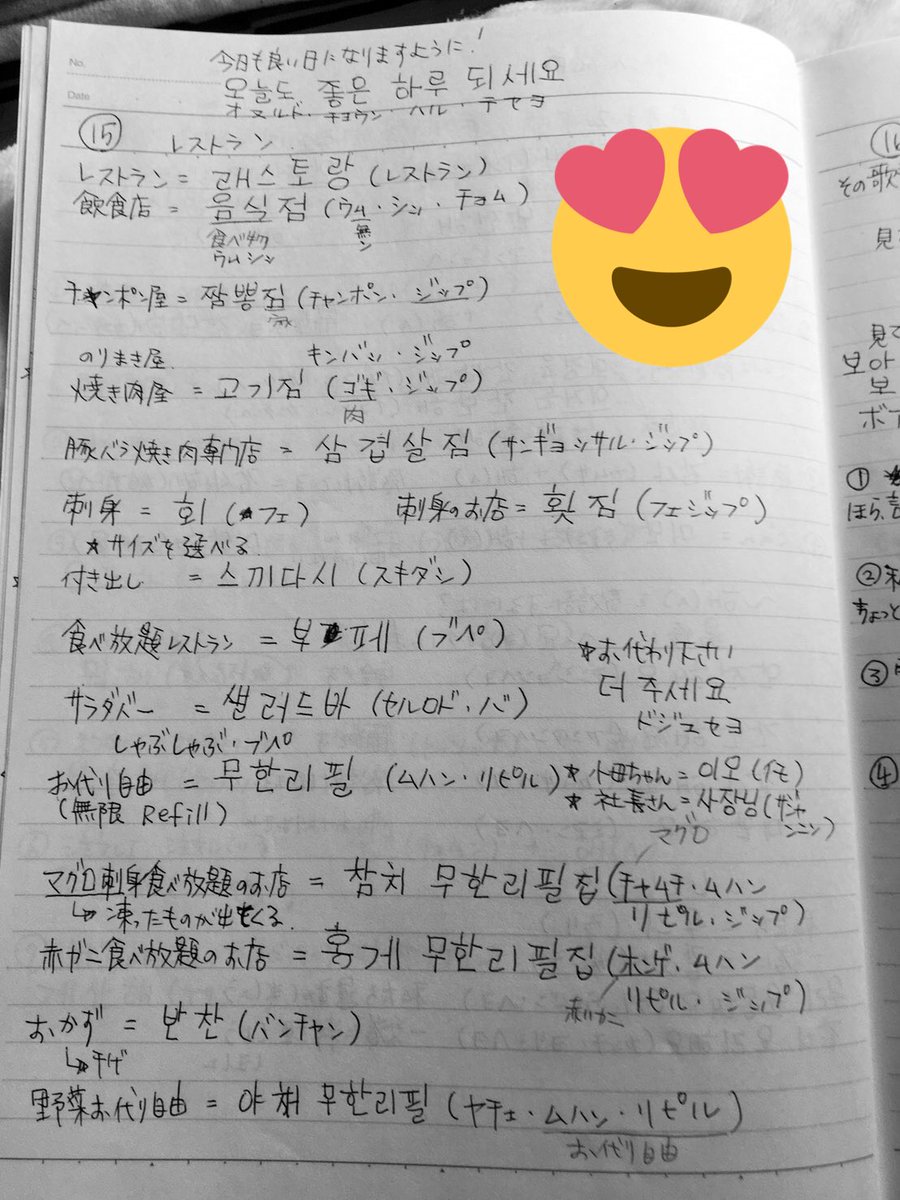 No.
Date
今日も良い日になりますように!
오늘도 좋은 하루 되세요
オヌルド・チョウン・ハル・デセヨ
⑮ レストラン
レストラン = 래스토랑 (レストラン)
飲食店 = 음식점 (ウム・シッ・チョム)
食べ物
ウムシッ
無ン
チャンポン屋 = 짬뽕집 (チャンポン・ジップ)
家
のりまき屋 キンバッ・ジップ
焼き肉屋 = 고기집 (ゴギ・ジップ)
肉
豚バラ焼き肉専門店 = 삼겹살집 (サンギョッサル・ジップ)
刺身 = 회 (フェ) 刺身のお店 = 횟집 (フェジップ)
★サイズを選べる
付き出し = 스끼다시 (スキダシ)
食べ放題レストラン = 부페 (ブペ)
★お代わり下さい
더 주세요
ドジュセヨ
サラダバー = 샐러드바 (セルロド・バ)
しゃぶしゃぶ・ブペ
お代り自由 = 무한리필 (ムハン・リピル)
(無限 Refill)
★小母ちゃん = 이모 (イモ)
★社長さん = 사장님 (サジャンニン)
マグロ
マグロ刺身食べ放題のお店 = 참치 무한리필집 (チャムチ・ムハン
リピル・ジップ)
↳凍ったものが出てくる
赤ガニ食べ放題のお店 = 홍게 무한리필집 (ホンゲ・ムハン
リピル・ジップ)
赤いかに
おかず = 반찬 (バンチャン)
野菜お代り自由 = 야채 무한리필 (ヤチェ・ムハン・リピル)
お代り自由
その歌
見
見て
보아
보
ボア
①
ほら、言
②私
ちょっと
③
④